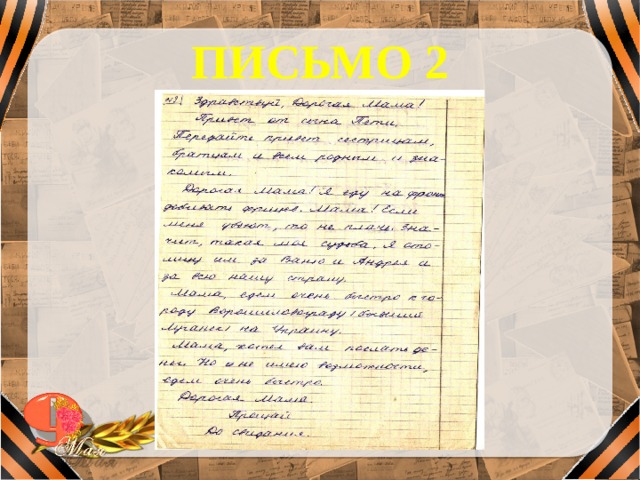 ПИСЬМО 2
№2. Здравствуй, Дорогая Мама!
Привет от сына Пети.
Передайте привет сестрицам,
братцам и всем родным и зна-
комым.
Дорогая Мама! Я еду на фронт
добивать фрицев. Мама! Если
меня убьют, то не плачь. Зна-
чит, такая моя судьба. Я ото-
мщу им за Ваню и Андрея и
за всю нашу страну.
Мама, едем очень быстро к го-
роду Ворошиловограду (бывший
Луганск) на Украину.
Мама, хотел вам послать де-
нег. Но и не имею возможности,
едем очень быстро.
Дорогая Мама.
Прощай
До свидания.
9 Мая